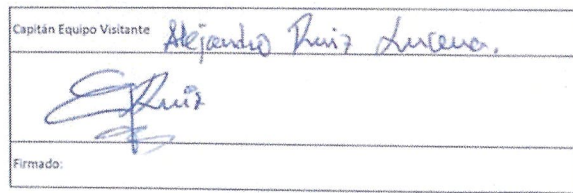 Capitán Equipo Visitante Alejandro Ruiz Lucena.
Ruiz
Firmado: